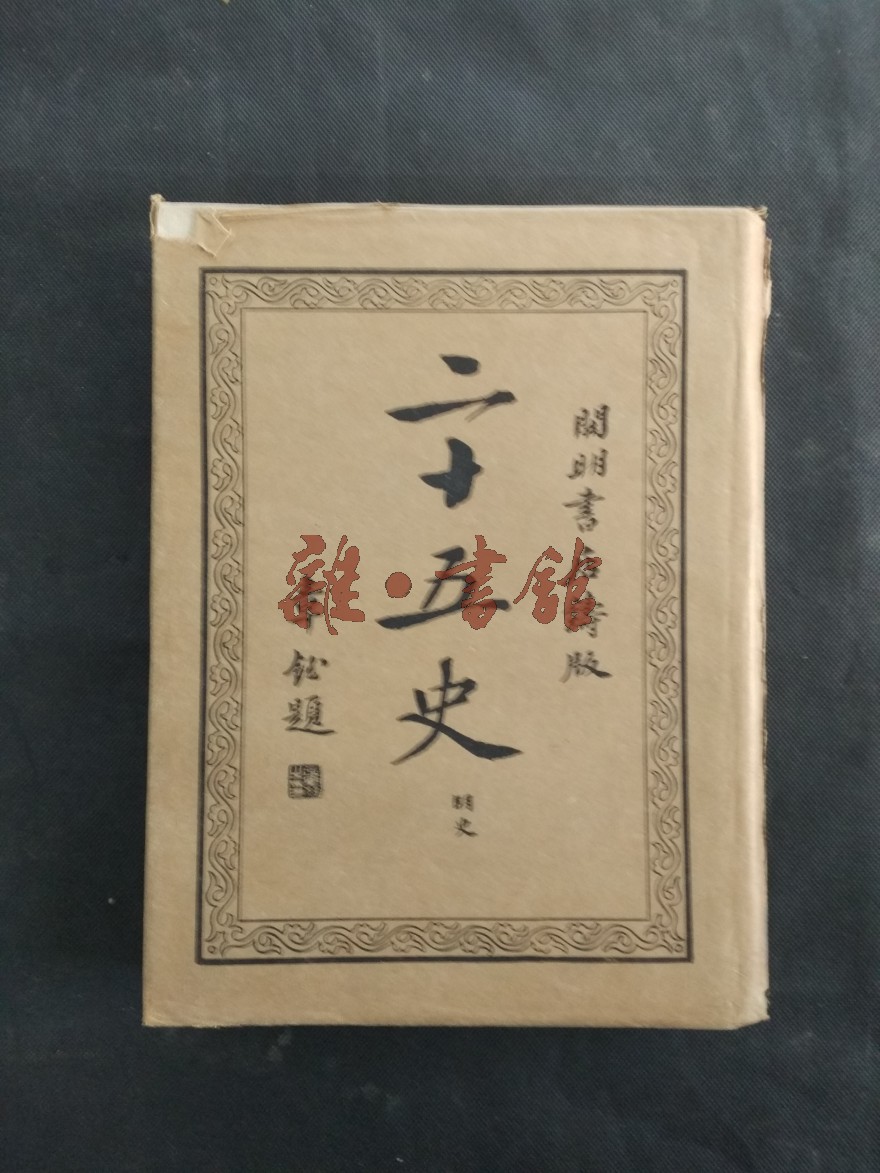 開明書店鑄版
二十五史
明史
章鈺題
雜·書館